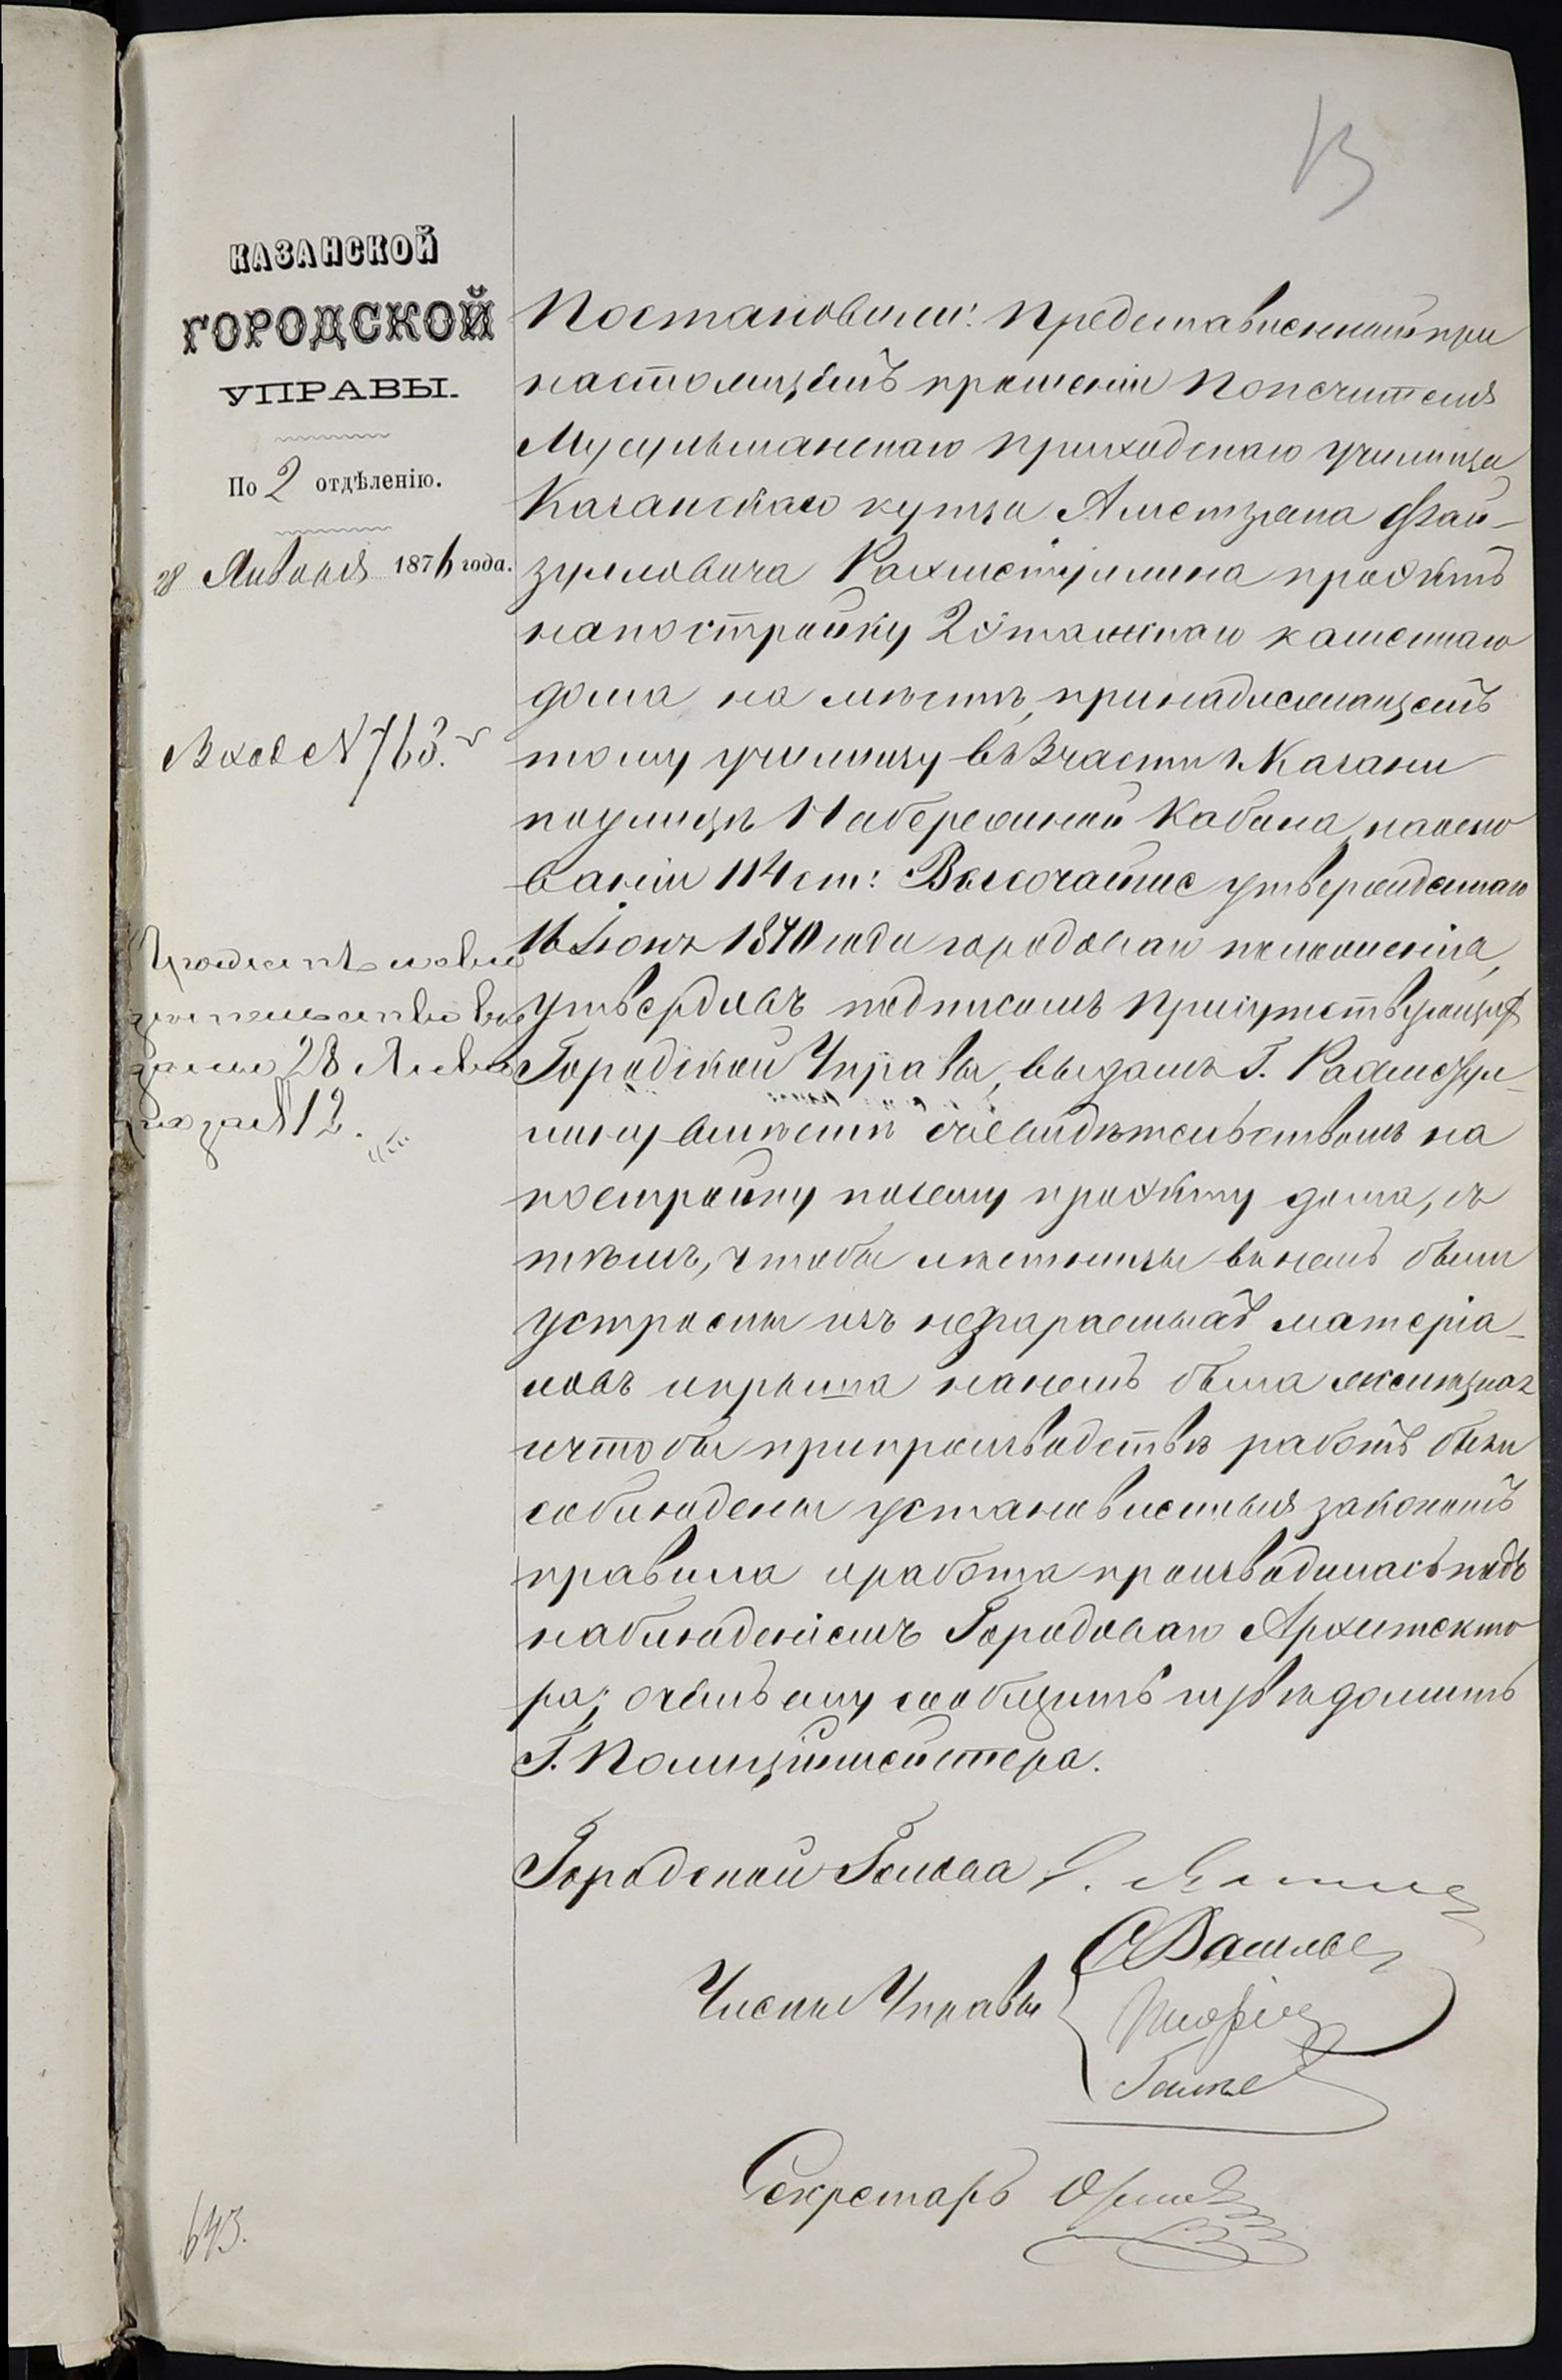 13
КАЗАНСКОЙ
ГОРОДСКОЙ
УПРАВЫ.
По 2 отдѣленію.
28 Января 1876 года.
Вход № 763.
Проектъ и свидѣ
тельство вы
даны 28 Января
за № 12.
643.
Постановили: Представленный при
настоящемъ прошеніи Попечителя
Мусульманскаго приходскаго училища,
Казанскаго купца Аметзяна Фай-
зулловича Рахметуллина проэктъ
на постройку 2 этажнаго каменнаго
дома на мѣстѣ, принадлежащемъ
тому училищу въ 3 части г. Казани
по улицѣ Набережной Кабана, на осно
ваніи 114 ст: Высочайше утвержденнаго
16 Іюня 1870 года городоваго положенія,
утвердивъ подписомъ присутствующихъ
Городской Управы, выдать Г. Рахметул-
лину вмѣстѣ со свидѣтельствомъ на
постройку по сему проэкту дома, съ
тѣмъ, чтобы лѣстницы въ немъ были
устроены изъ несгараемыхъ матеріа-
ловъ и крыша на немъ была желѣзная
и чтобы при производствѣ работъ были
соблюдены установленныя закономъ
правила и работа производилась подъ
наблюденіемъ Городоваго Архитекто
ра; о чемъ ему сообщить и увѣдомить
Г. Полиціймейстера.
Городской Голова
Члены Управы
Секретарь